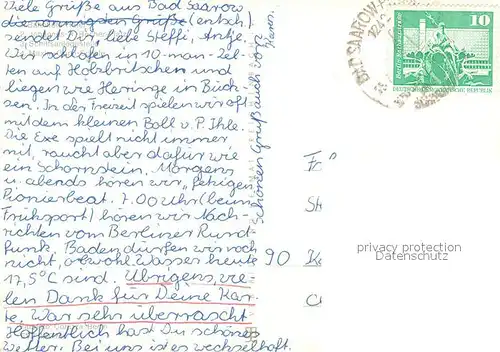 Viele Grüße aus Bad Saarow
die sonnigsten Grüße (entsch.)
sendet Dir liebe Steffi, Antje.
Wir schlafen in 10-man-Zel-
ten auf Holzbritschen und
liegen wie Heringe in Büch
sen. In der Freizeit spielen wir oft
mit dem kleinen Ball v. P. Ihle.
Die Exe spielt nicht immer
mit, raucht aber dafür wie
ein Schornstein. Morgens
u. abends hören wir "fetzigen"
Pionierbeat. 7.00 Uhr (beim
Frühsport) hören wir Nach-
richten vom Berliner Rund
funk. Baden dürfen wir noch
nicht, obwohl Wasser heute
17,5°C sind. Übrigens, vie-
len Dank für Deine Kar-
te. War sehr überrascht
Hoffentlich hast Du schönes
Wetter. Bei uns ist es wechselhaft.
Schönen Gruß auch von
BAD SAAROW-P
10
DEUTSCHE DEMOKRATISCHE REPUBLIK
90
privacy protection
Datenschutz